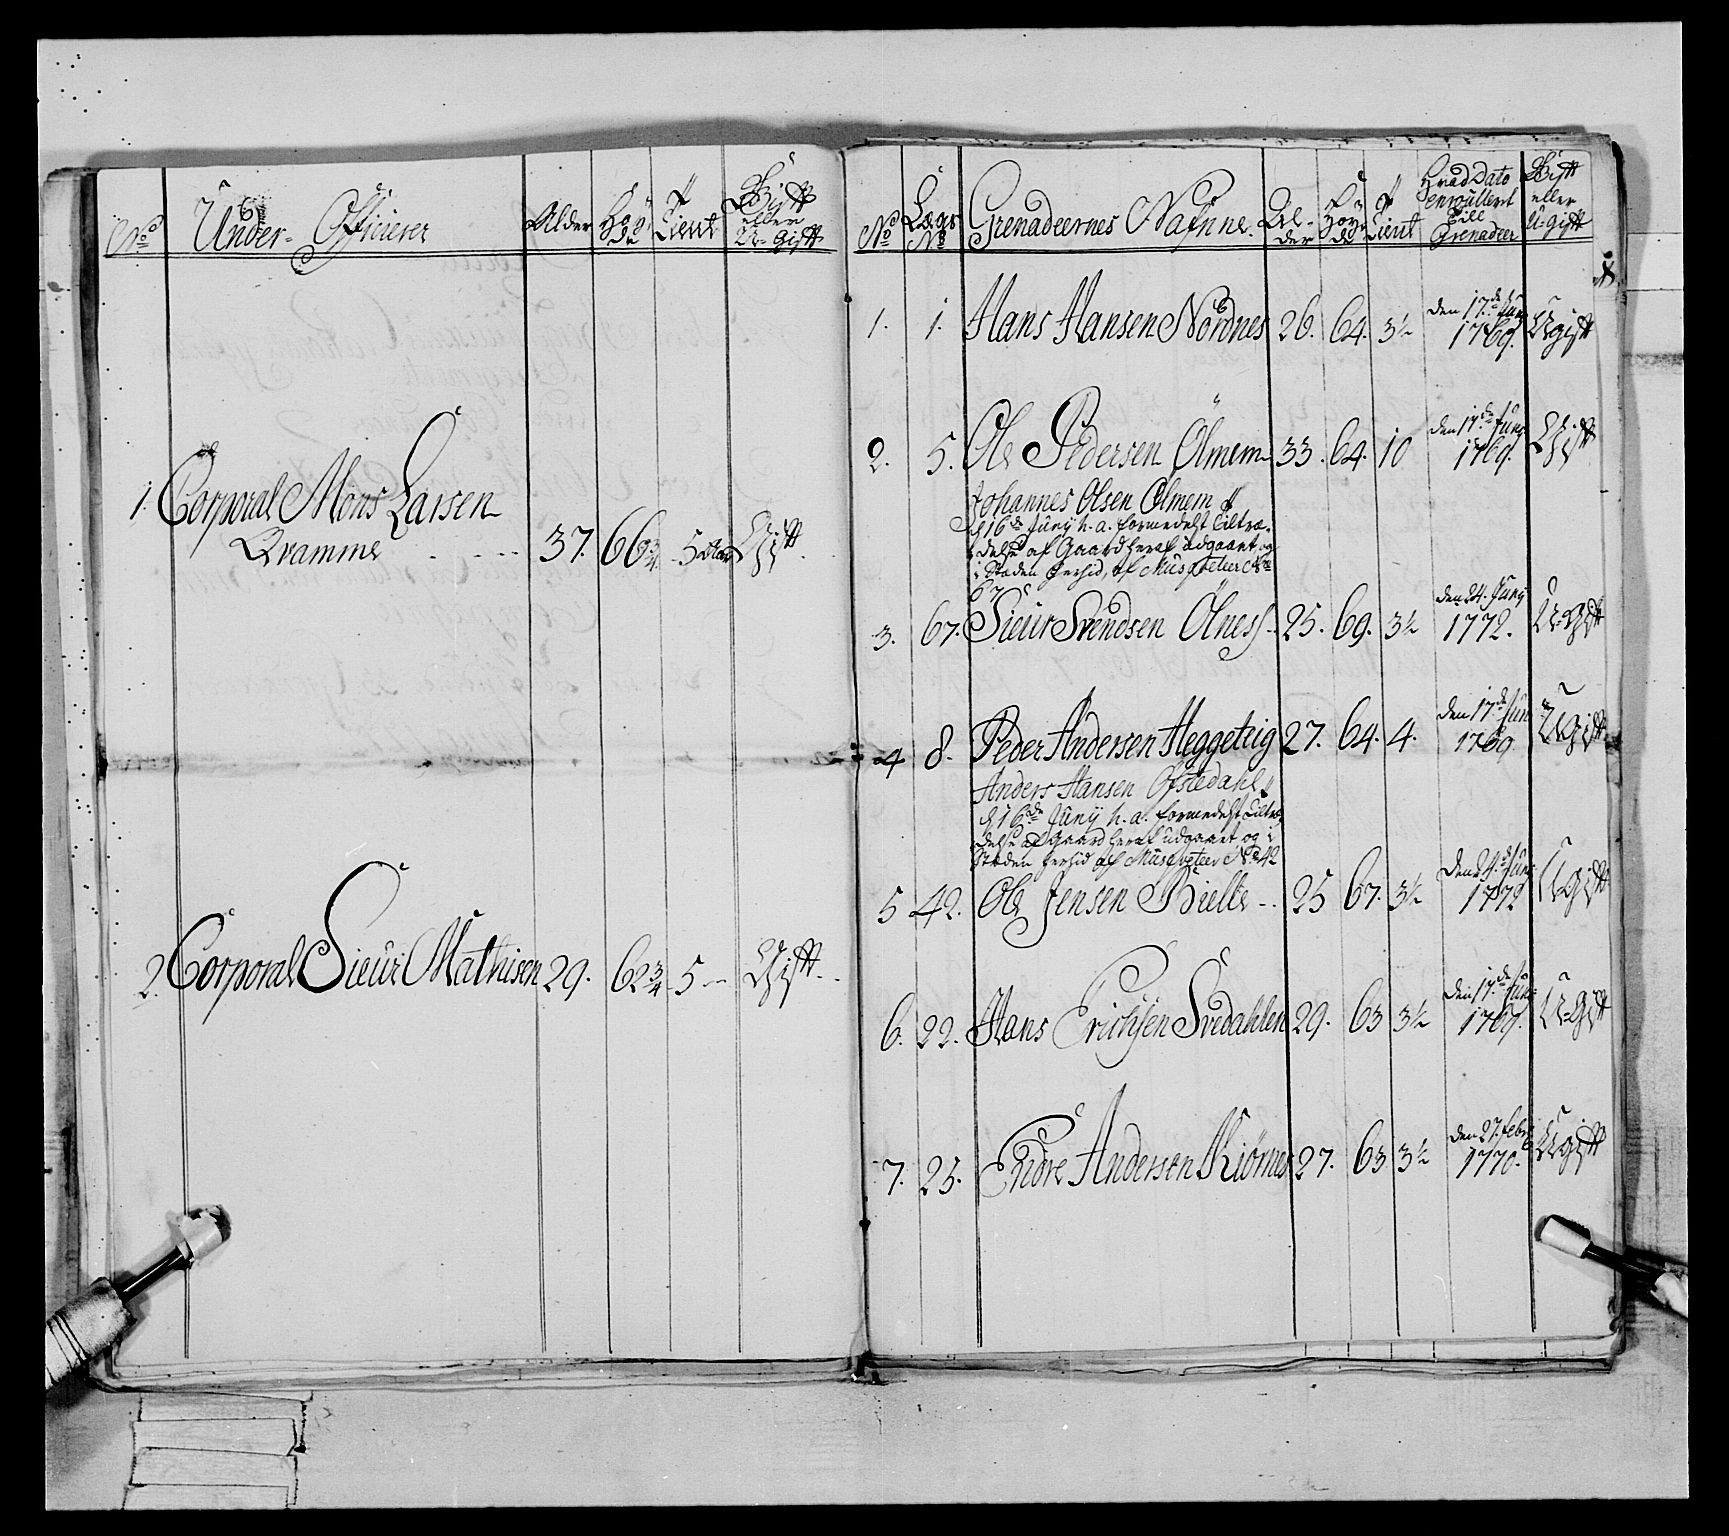 No
Under-Officierer
Alder
Høyde
Tient
Gift eller U-gift
1. Corporal Mons Larsen
Qvamme 37. 66 3/4 5 Gift
2. Corporal Siur Mathisen 29. 62 3/4 5 Gift
No
Lægs No
Grenadeernes Nafne.
Alder
Høyde
Tient
Hvad Dato enroullert till Grenadeer
Gift eller U-gift
1. 1. Hans Hansen Nordnes 26. 64. 3½ den 17de Juny 1769. Ugift
2. 5. Ole Pedersen Ölmem 33. 64. 10 den 17de Juny 1769. Gift
Johannes Olsen Ölmem
d 16de Juny h. a. formedelst Tiltræ-
delse af Gaard heraf udgaaet og
i Stæden herhid, af Musqveteer No
67
3. 67. Siur Svendsen Ölness 25. 69. 3½ den 24. Juny 1772. U-Gift
4 8. Peder Andersen Heggetvig 27. 64. 4. den 17de Juny 1769 UGift
Anders Hansen Ofstedahl
d 16de Juny h. a. formedelst Tiltræ-
delse af Gaard heraf udgaaet og i
Stæden herhid af Musqveteer No 42
5 42. Ole Jensen Bielle 25 67. 3½ den 24. Juny 1772 U-Gift
6. 22. Hans Erichsen Svedahlen 29. 63 3½ den 17de Juny 1769. U-Gift
7. 25. Endre Andersen Kiørnes 27. 63 3½ den 27. Febr: 1770. Ugift